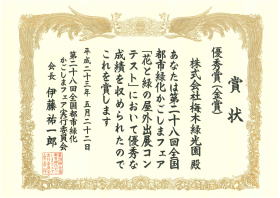 賞状
優秀賞(金賞)
株式会社梅木緑光園 殿
あなたは第二十八回全国
都市緑化かごしまフェア
「花と緑の屋外出展コン
テスト」において優秀な
成績を収められたので
これを賞します
平成二十三年 五月二十二日
第二十八回全国都市緑化
かごしまフェア実行委員会
会長 伊藤祐一郎